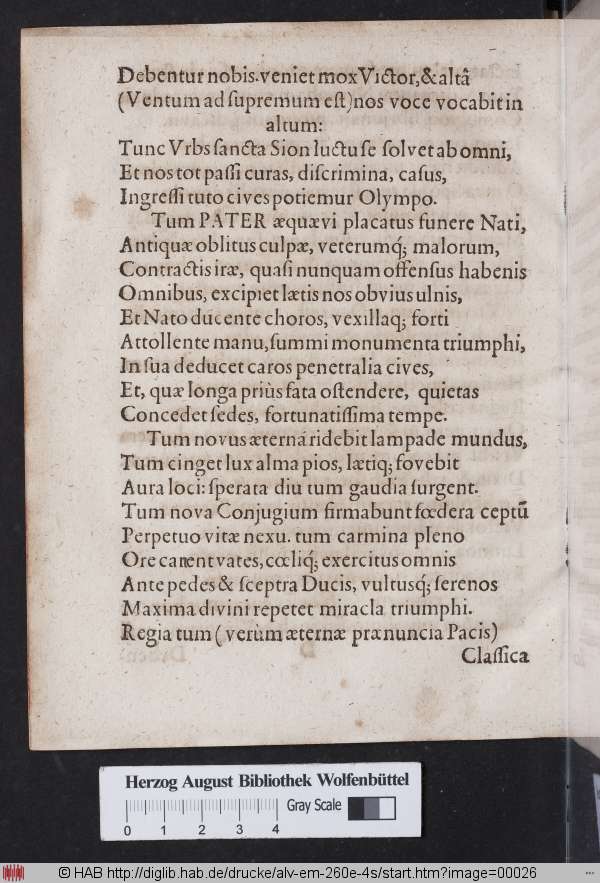 Debentur nobis. veniet mox Victor, & altâ
(Ventum ad ſupremum eſt) nos voce vocabit in
altum:
Tunc Vrbs ſancta Sion luctu ſe ſolvet ab omni,
Et nos tot paſſi curas, diſcrimina, caſus,
Ingreſſi tuto cives potiemur Olympo.
Tum PATER æquævi placatus funere Nati,
Antiquæ oblitus culpæ, veterumq́; malorum,
Contractis iræ, quaſi nunquam offenſus habenis
Omnibus, excipiet lætis nos obvius ulnis,
Et Nato ducente choros, vexillaq; forti
Attollente manu, ſummi monumenta triumphi,
In ſua deducet caros penetralia cives,
Et, quæ longa priùs fata oſtendere, quietas
Concedet ſedes, fortunatiſſima tempe.
Tum novus æternâ ridebit lampade mundus,
Tum cinget lux alma pios, lætiq; fovebit
Aura loci: ſperata diu tum gaudia ſurgent.
Tum nova Conjugium firmabunt fœdera ceptū
Perpetuo vitæ nexu. tum carmina pleno
Ore canent vates, cœliq́; exercitus omnis
Ante pedes & ſceptra Ducis, vultusq́; ſerenos
Maxima divini repetet miracla triumphi.
Regia tum (verùm æternæ prænuncia Pacis)
Claſſica
Herzog August Bibliothek Wolfenbüttel
Gray Scale
0 1 2 3 4
© HAB http://diglib.hab.de/drucke/alv-em-260e-4s/start.htm?image=00026